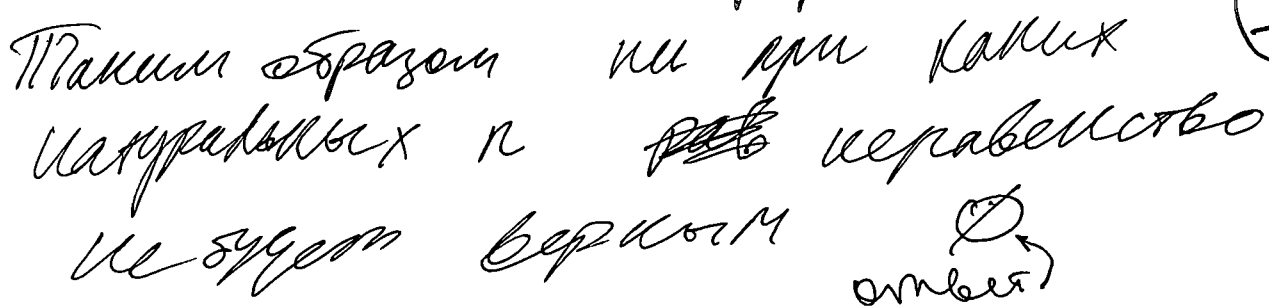 Таким образом ни при каких
натуральных n неравенство
не будет верным ∅
ответ